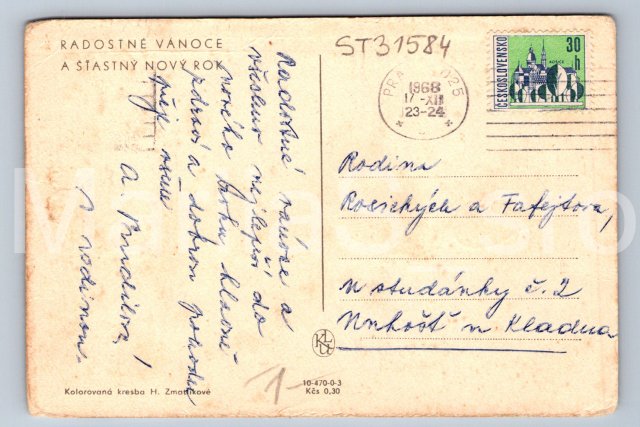 RADOSTNÉ VÁNOCE
A ŠŤASTNÝ NOVÝ ROK
ST31584
ČESKOSLOVENSKO
30 h
KOŠICE
PRA 025
1968
17.-XII
23-24
Radostné vánoce a
všechno nejlepší do
nového roku hlavně
zdraví a dobrou pohodu
přeje
A.
s rodinou.
Rodina
a
u studánky č. 2
Unhošť u Kladna
10-470-0-3
Kčs 0,30
Kolorovaná kresba H. Zmatlíkové
1-